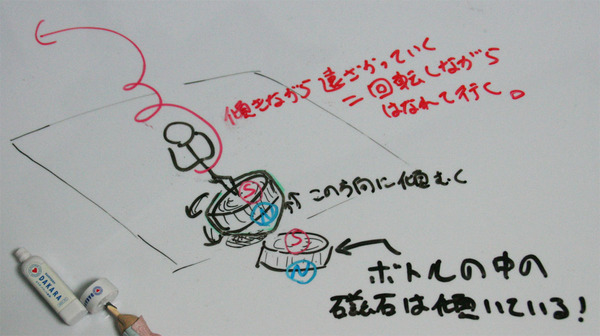 傾きながら遠ざかっていく
＝回転しながら
はなれて行く。
S
N
この方向に傾むく
S
N
ボトルの中の
磁石は傾いている!
DAKARA